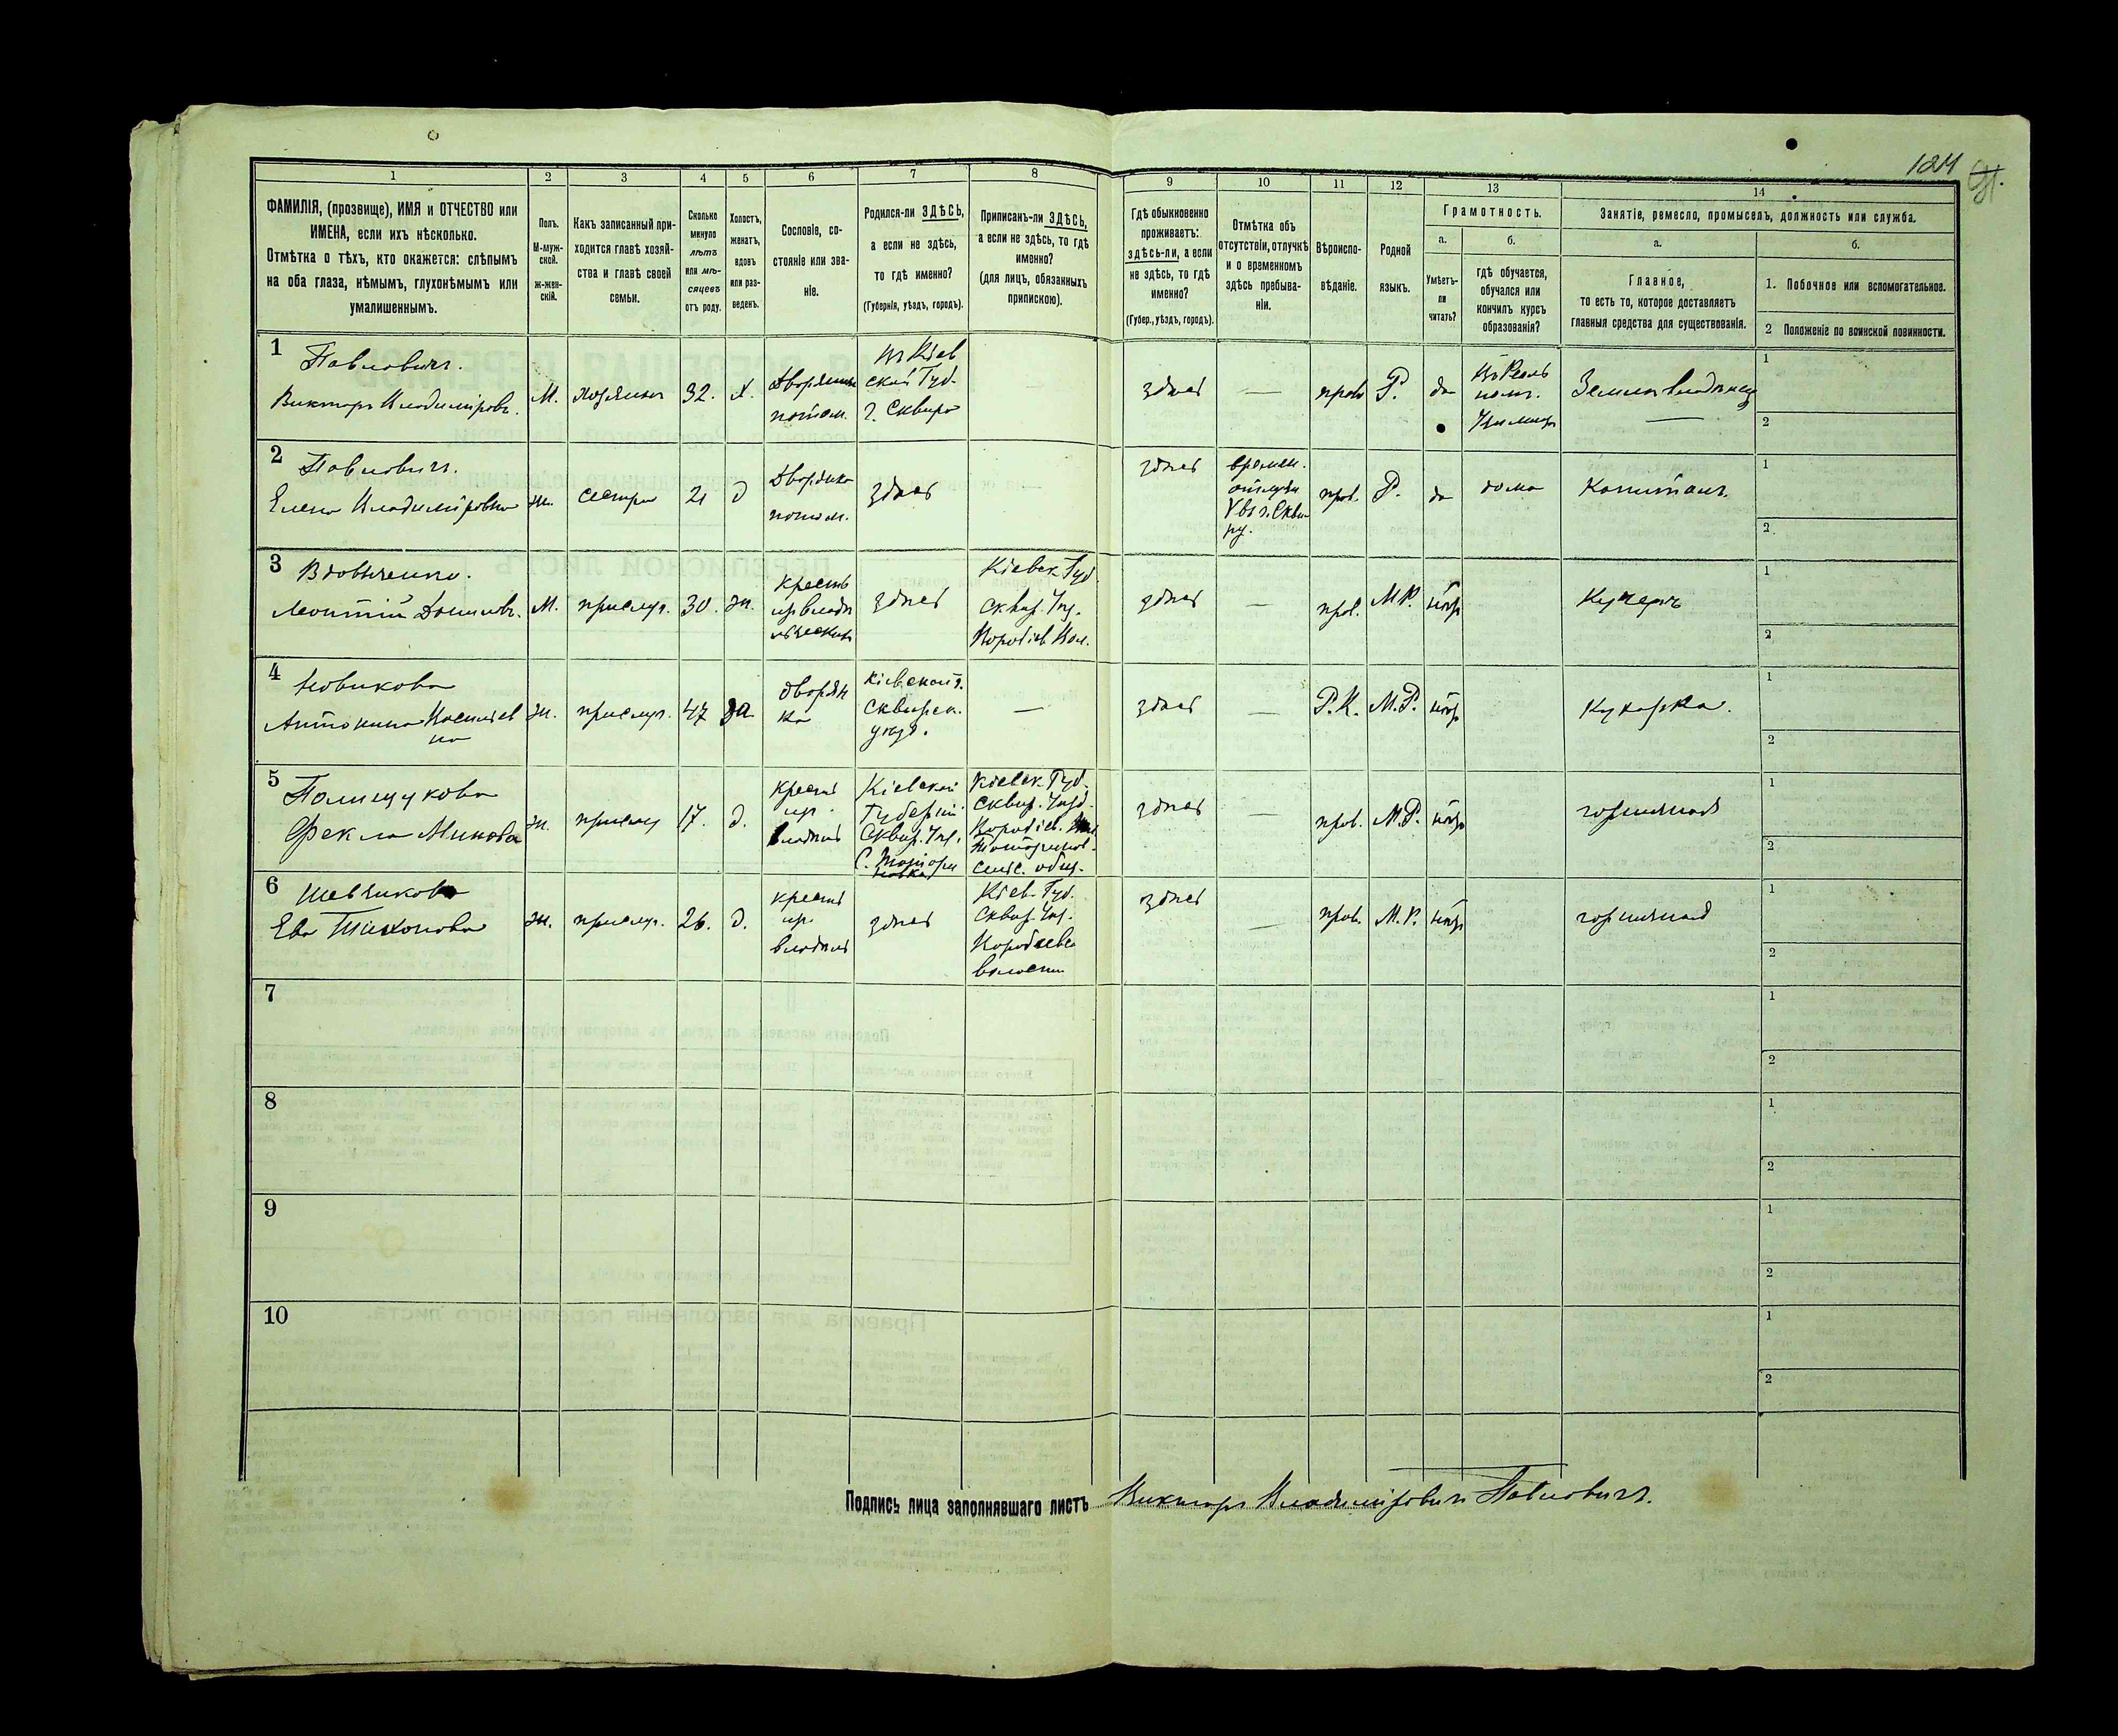 124
1 2 3 4 5 6 7 8 9 10 11 12 13 14
ФАМИЛІЯ, (прозвище), ИМЯ и ОТЧЕСТВО или
ИМЕНА, если ихъ нѣсколько.
Отмѣтка о тѣхъ, кто окажется: слѣпымъ
на оба глаза, нѣмымъ, глухонѣмымъ или
умалишеннымъ.
Полъ.
М-муж-
ской.
Ж-жен-
скій.
Какъ записанный при-
ходится главѣ хозяй-
ства и главѣ своей
семьи.
Сколько
минуло
лѣтъ
или мѣ-
сяцевъ
отъ роду.
Холостъ,
женатъ,
вдовъ
или раз-
веденъ.
Сословіе, со-
стояніе или зва-
ніе.
Родился-ли ЗДѢСЬ,
а если не здѣсь,
то гдѣ именно?
(Губернія, уѣздъ, городъ).
Приписанъ-ли ЗДѢСЬ,
а если не здѣсь, то гдѣ
именно?
(для лицъ, обязанныхъ
припискою).
Гдѣ обыкновенно
проживаетъ:
здѣсь-ли, а если
не здѣсь, то гдѣ
именно?
(Губер., уѣздъ, городъ).
Отмѣтка объ
отсутствіи, отлучкѣ
и о временномъ
здѣсь пребыва-
ніи.
Вѣроиспо-
вѣданіе.
Родной
языкъ.
Грамотность.
а.
Умѣетъ-
ли
читать?
б.
гдѣ обучается,
обучался или
кончилъ курсъ
образованія?
Занятіе, ремесло, промыселъ, должность или служба.
а.
Главное,
то есть то, которое доставляетъ
главныя средства для существованія.
б.
1. Побочное или вспомогательное.
2 Положеніе по воинской повинности.
1
Павловичъ.
Викторъ Владиміровъ.
М.
хозяинъ
32.
х.
Дворянинъ
потом.
въ Кіев
ской Губ.
г. Сквира
—
здѣсь
—
прав
Р.
да
въ Реаль
ном.
Училищѣ
Землевладѣлецъ
1
2
2
Павловичъ.
Елена Владиміровна
ж.
сестра
21
д
Дворянка
потом.
здѣсь
здѣсь
времен.
отлучи
въ г. Скви
ру.
прав.
Р.
да
дома
Капиталъ.
1
2
3
Вдовиченко.
Леонтій Данилов.
М.
прислуг.
30.
ж.
крестъ
изъ владѣ
льческихъ
здѣсь
Кіевск. Губ.
Сквир. Уѣз.
Воробіев. Вол.
здѣсь
—
прав.
М.Р.
нѣтъ
Кучеръ
1
2
4
Новикова
Антонина Васильев
на
ж.
прислуг.
47
да
дворян
ка
Кіевской г.
Сквирск.
уѣзд.
—
здѣсь
—
Р.К.
М.Р.
нѣтъ
Кухарка.
1
2
5
Полищукова
Фекла Минова
ж.
прислуг
17.
д.
крестьян
изъ
владѣль
Кіевской
Губерніи
Сквир. Уѣз.
Кіевск. Губ.
Сквир. Уѣзд.
Воробіев.
сельс. общ.
здѣсь
прав.
М.Р.
нѣтъ
горничная
1
2
6
Шевчикова
Ева Тихонова
ж.
прислуг.
26.
д.
крестьян
изъ
владѣль
здѣсь
Кіев. Губ.
Сквир. Уѣз.
Воробіевс
волости
здѣсь
—
прав.
М.Р.
нѣтъ
горничная
1
2
7
1
2
8
1
2
9
1
2
10
1
2
Подпись лица заполнявшаго листъ Викторъ Владиміровичъ Павловичъ.